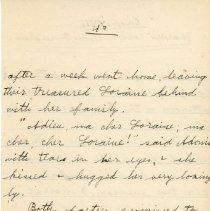 after a week went home, leaving
their treasured Loraine behind
with her family.
"Adieu, ma cher Loraine; ma
cher, cher Loraine!" said Adonis
with tears in her eyes, & she
kissed & hugged her very loving
ly.
Both parties promised to